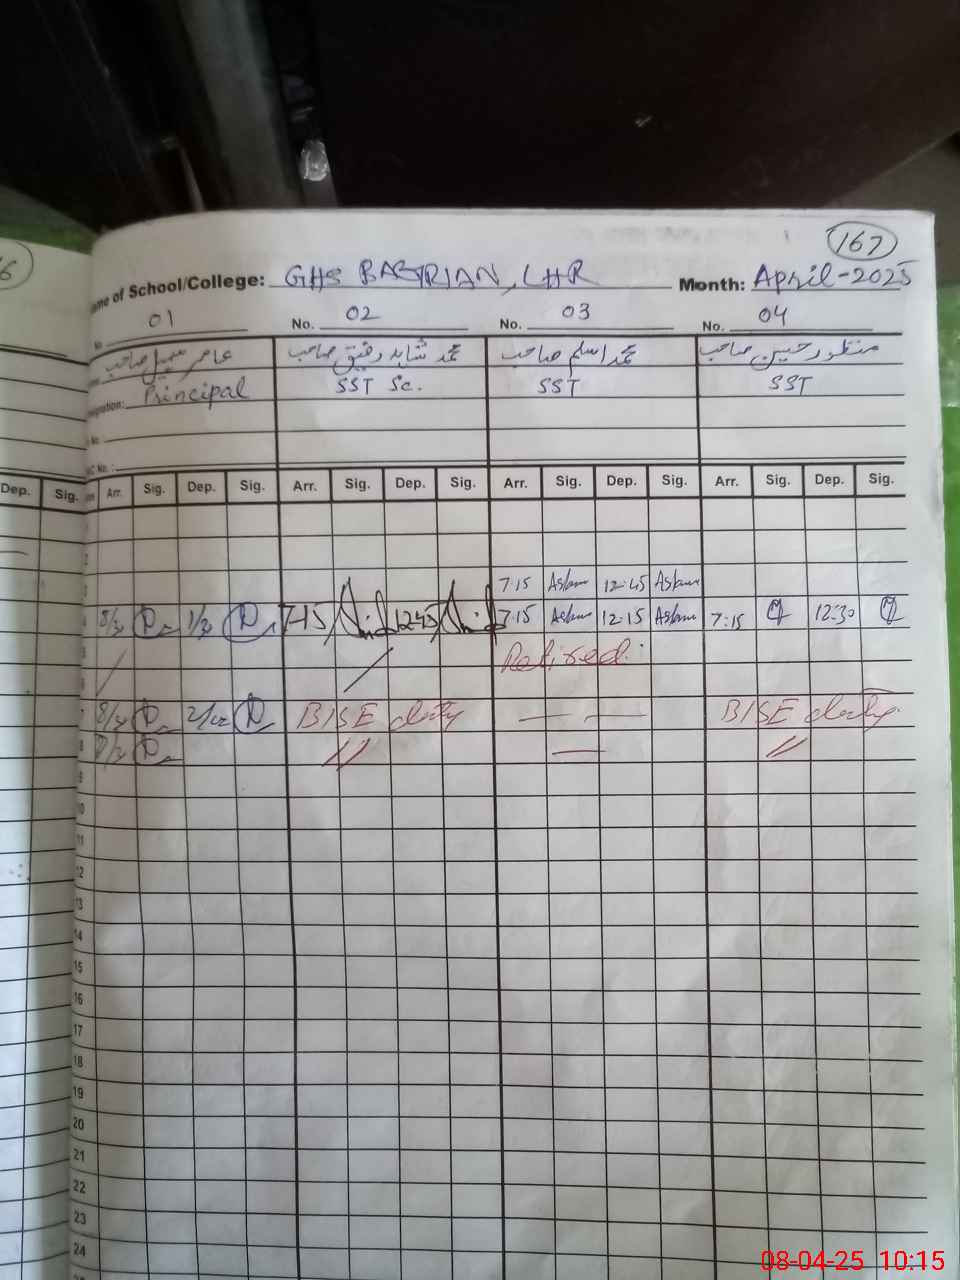 167
Name of School/College: GHS BABTRIAN, LHR Month: April-2025
01 No. 02 No. 03 No. 04
عامر سہیل صاحب محمد شاہد رفیق صاحب محمد اسلم صاحب منظور حسین صاحب
Designation: Principal SST Sc. SST SST
No.
C No. :
Dep. Sig. Arr. Sig. Dep. Sig. Arr. Sig. Dep. Sig. Arr. Sig. Dep. Sig. Arr. Sig. Dep. Sig.
2
3 7:15 Aslam 12:45 Aslam
4 7:15 12:45 7:15 Aslam 12:15 Aslam 7:15 12:30
5 Retired.
6
7 BISE duty — — BISE duty
8 // — //
9
10
11
12
13
14
15
16
17
18
19
20
21
22
23
24
08-04-25 10:15